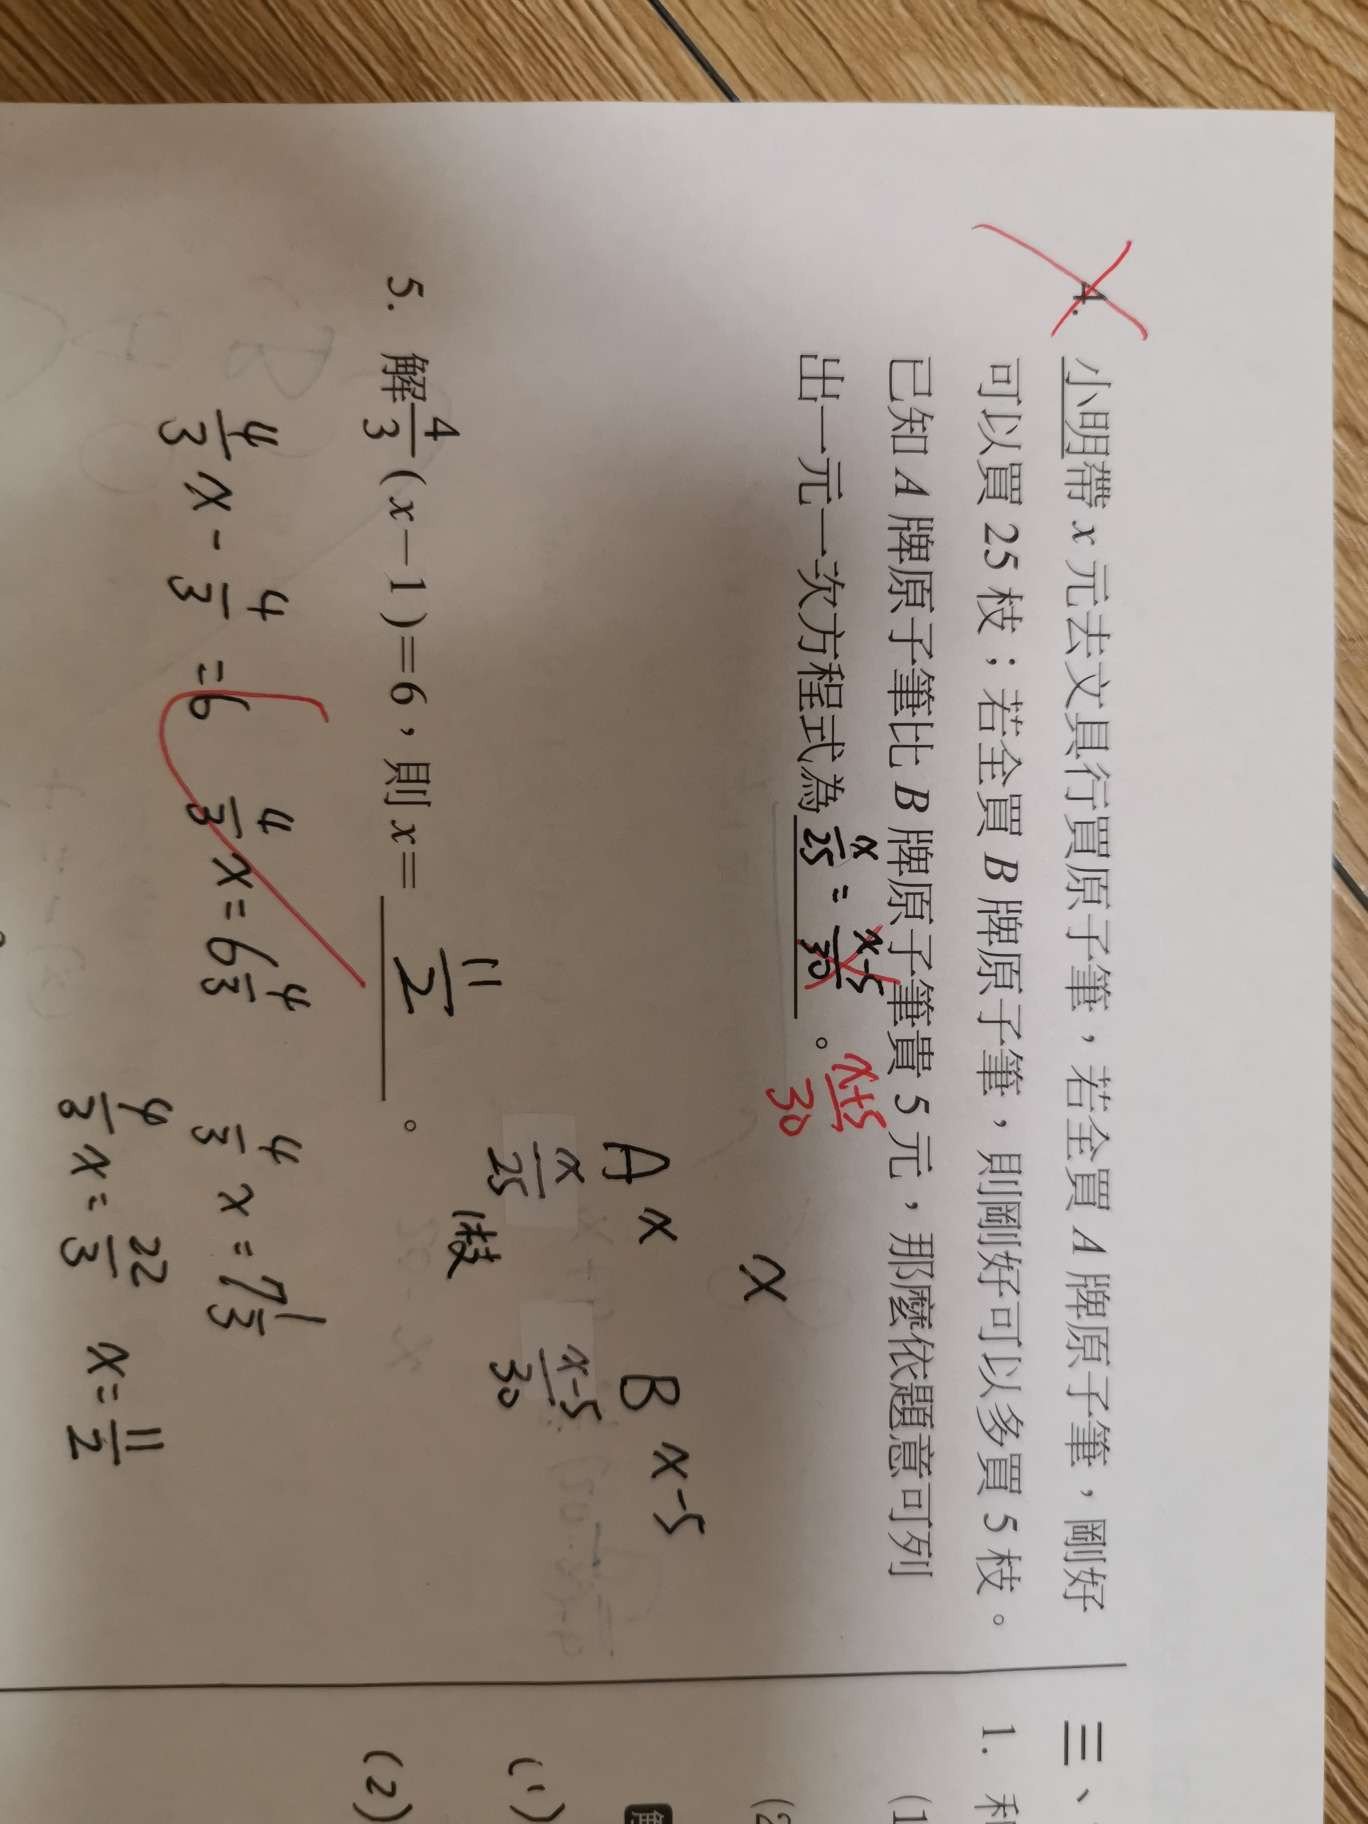 4. 小明帶 x 元去文具行買原子筆，若全買 A 牌原子筆，剛好
可以買 25 枝；若全買 B 牌原子筆，則剛好可以多買 5 枝。
已知 A 牌原子筆比 B 牌原子筆貴 5 元，那麼依題意可列
出一元一次方程式為 x/25 = x-5/30 。 x+5/30
x
A x B x-5
x/25 x-5/30
1枝
5. 解 4/3 (x－1)＝6，則 x＝ 11/2 。
4/3 x - 4/3 = 6 4/3 x = 6 4/3 4/3 x = 7 1/3
4/3 x = 22/3 x = 11/2
三、
1.
(1
(2
解
(1)
(2)